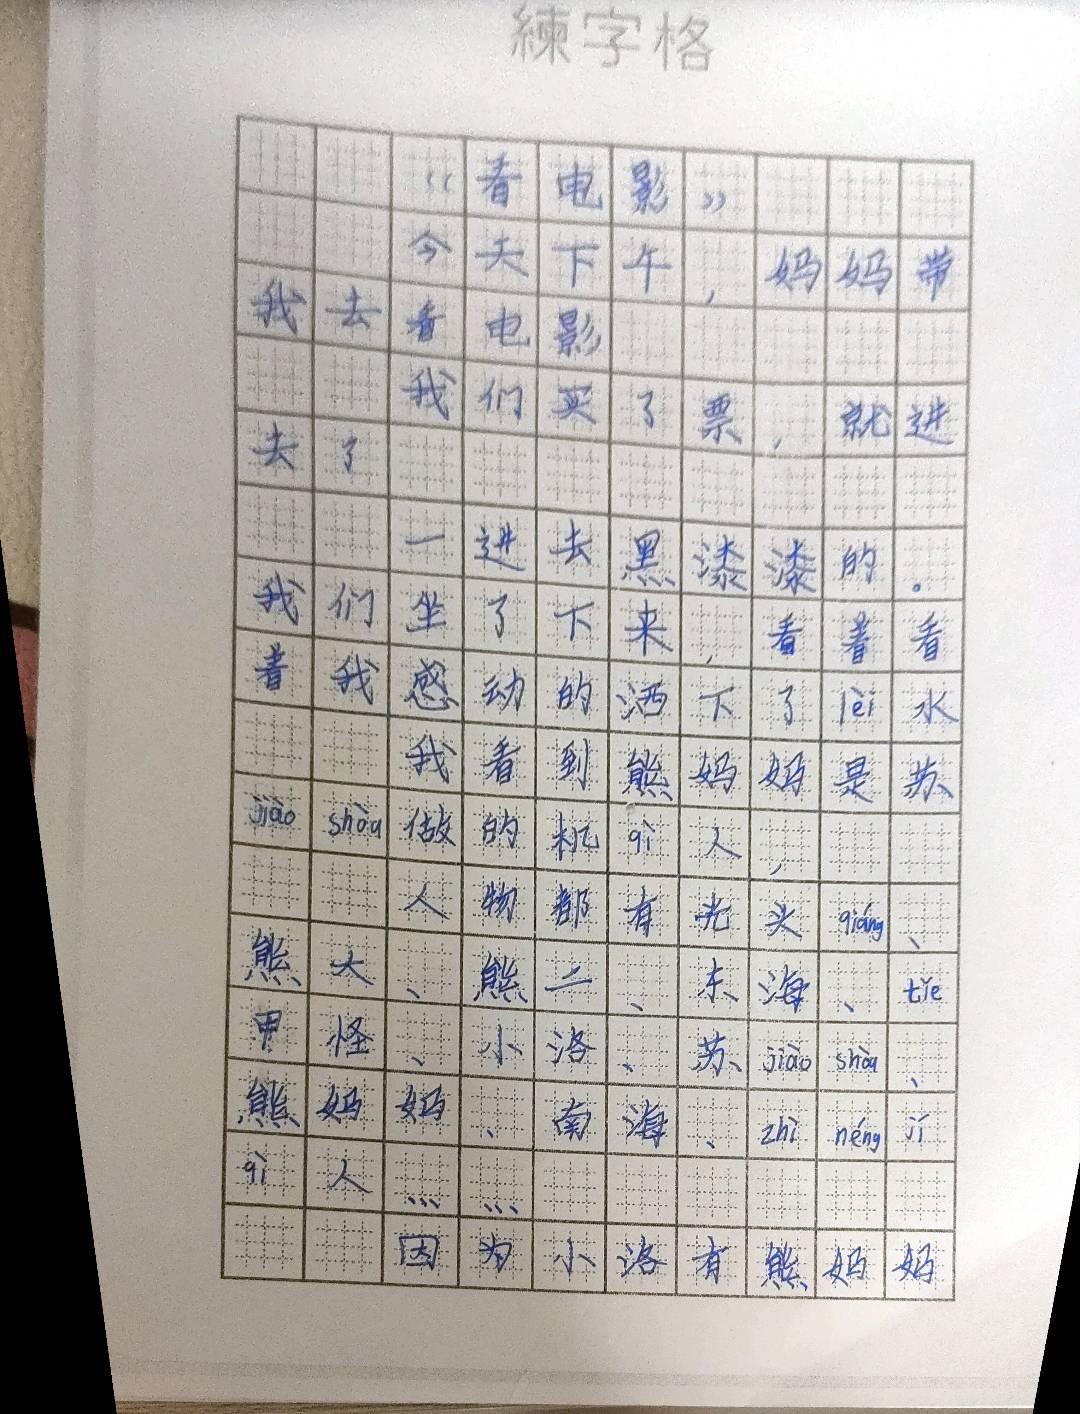 練字格
《看电影》
今天下午,妈妈带
我去看电影
我们买了票,就进
去了
一进去黑漆漆的。
我们坐了下来,看着看
着我感动的洒下了lèi水
我看到熊妈妈是苏
jiào shòu做的机qì人,
人物都有光头qiáng、
熊大、熊二、东海、tiě
甲怪、小洛、苏jiào shòu、
熊妈妈、南海、zhì néng jī
qì人……
因为小洛有熊妈妈